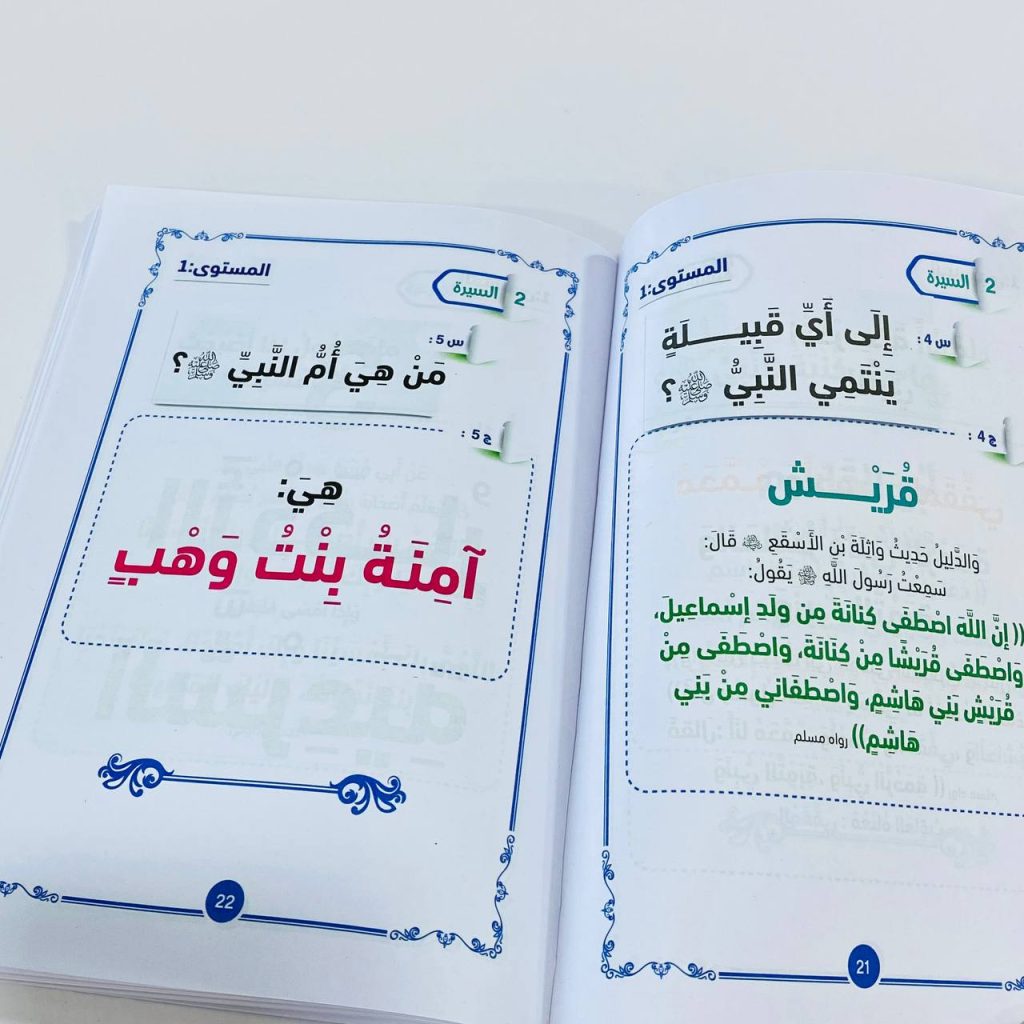 2 السيرة
المستوى:1
س 4:
إِلَى أَيِّ قَبِيـــلَةٍ
يَنْتَمِي النَّبِيُّ ﷺ ؟
ج 4:
قُرَيْـــش
وَالدَّلِيلُ حَدِيثُ وَاثِلَةَ بْنِ الأَسْقَعِ قَالَ:
سَمِعْتُ رَسُولَ اللَّهِ ﷺ يَقُولُ:
((إِنَّ اللَّهَ اصْطَفَى كِنَانَةَ مِن ولَدِ إِسْماعِيلَ،
وَاصْطَفَى قُرَيْشًا مِنْ كِنَانَةَ، وَاصْطَفَى مِنْ
قُرَيْشٍ بَنِي هَاشِمٍ، وَاصْطَفَانِي مِنْ بَنِي
هَاشِمٍ)) رواه مسلم
21
2 السيرة
المستوى:1
س 5:
مَنْ هِيَ أُمُّ النَّبِيِّ ﷺ ؟
ج 5:
هِيَ:
آمِنَةُ بِنْتُ وَهْبٍ
22